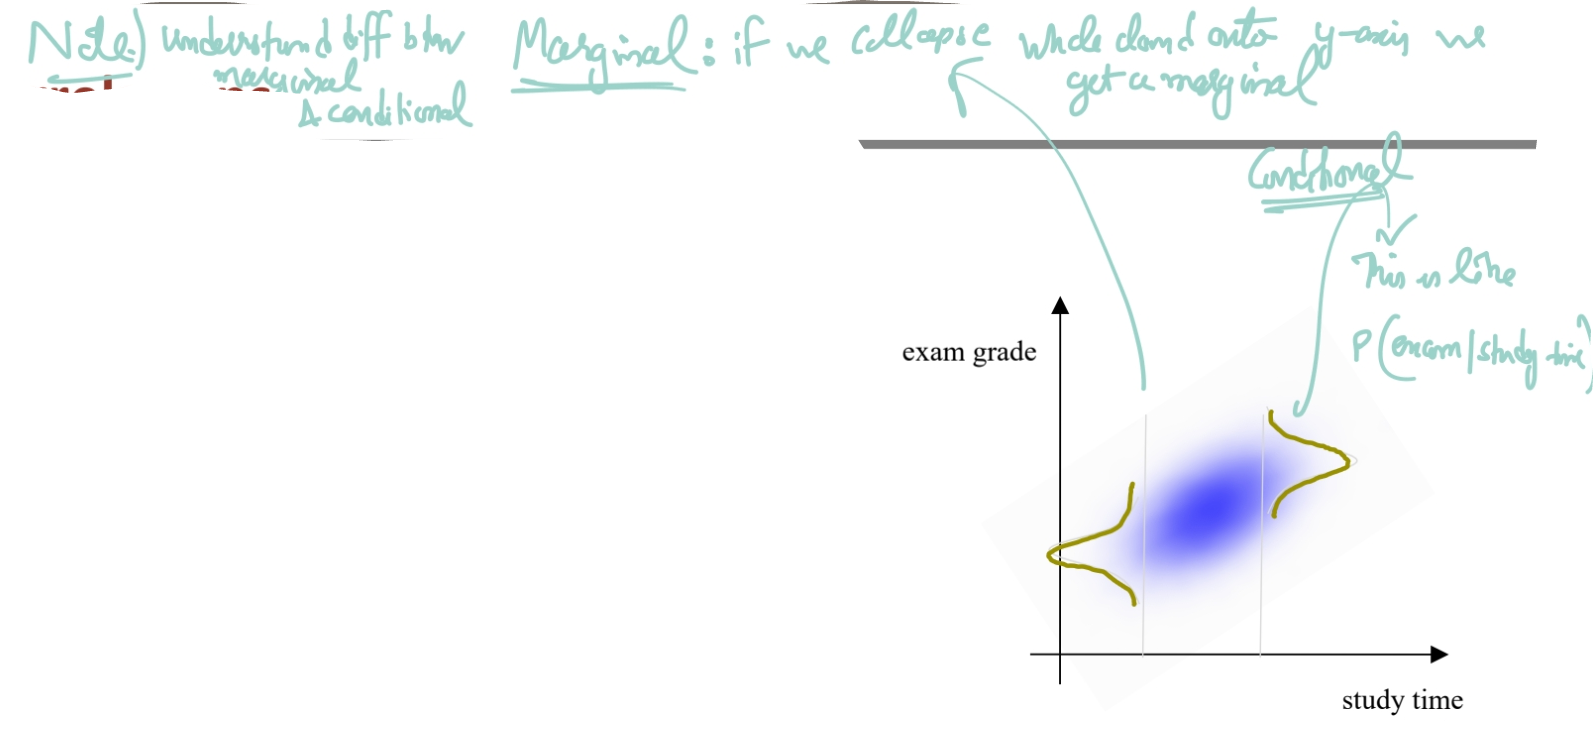 Note:) Understand diff btw
marginal
& conditional
Marginal: if we collapse whole cloud onto y-axis we
get a marginal
Conditional
This is like
P(exam/study time)
exam grade
study time